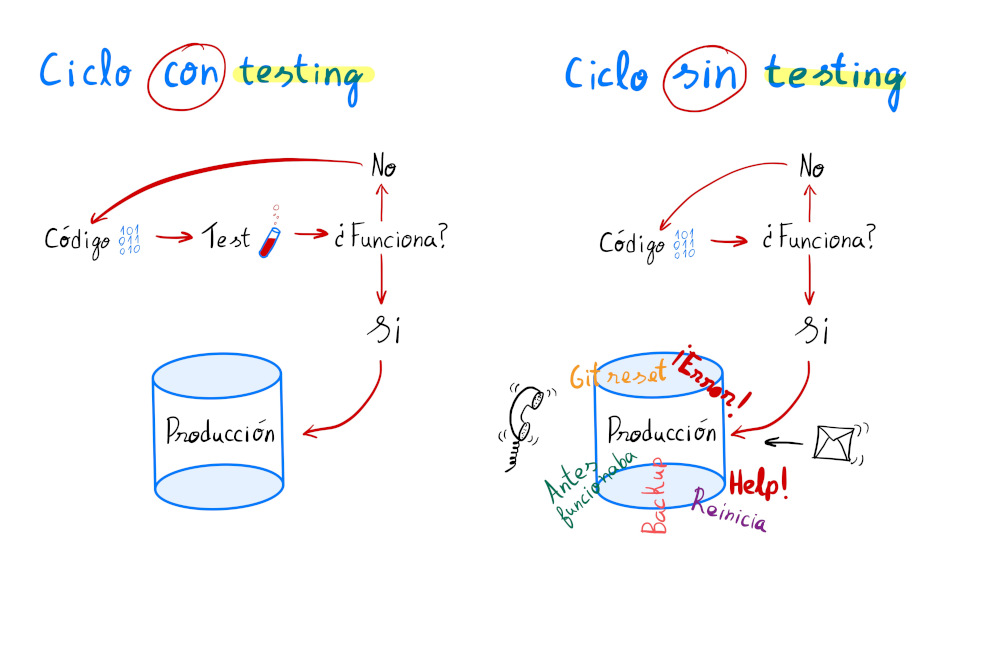 Ciclo con testing
No
Código 101 011 010
Test
¿Funciona?
Si
Producción
Ciclo sin testing
No
Código 101 011 010
¿Funciona?
Si
Git reset
¡Error!
Producción
Antes
funcionaba
Backup
Help!
Reinicia